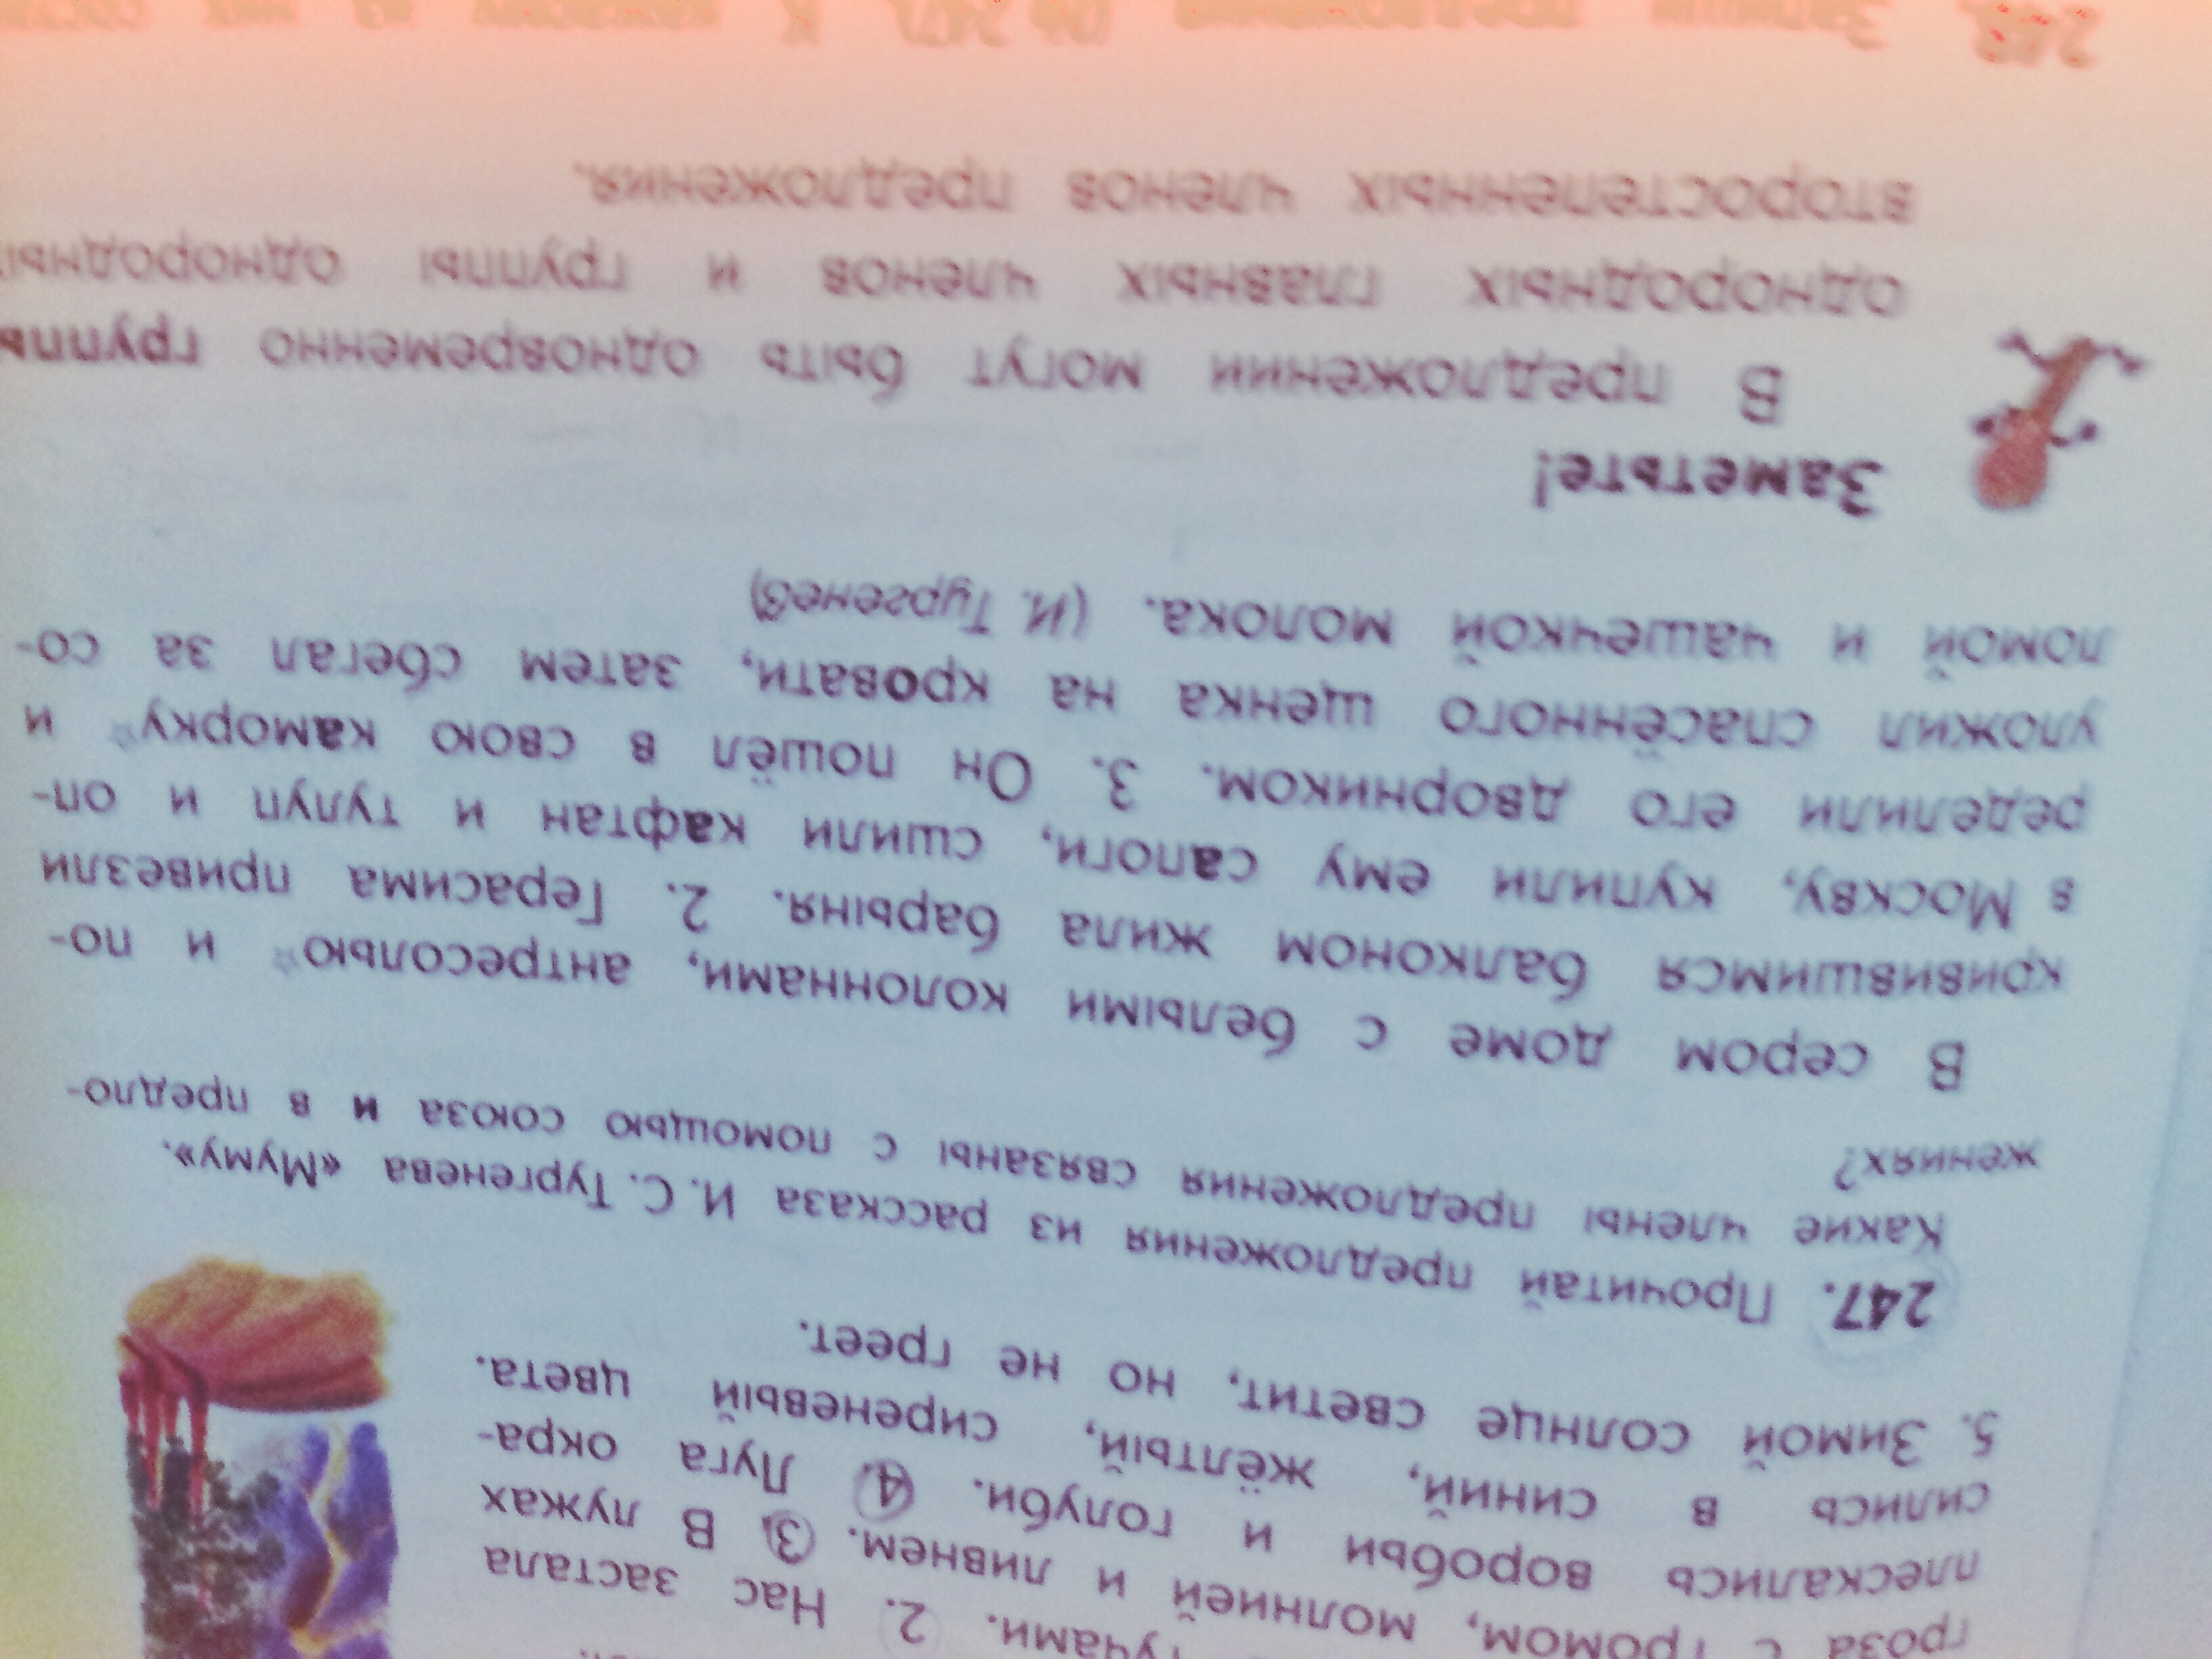 тучами. 2. Нас застала
гроза с громом, молнией и ливнем. 3. В лужах
плескались воробьи и голуби. 4. Луга окра-
сились в синий, жёлтый, сиреневый цвета.
5. Зимой солнце светит, но не греет.
247. Прочитай предложения из рассказа И. С. Тургенева «Муму».
Какие члены предложения связаны с помощью союза и в предло-
жениях?
В сером доме с белыми колоннами, антресолью☆ и по-
кривившимся балконом жила барыня. 2. Герасима привезли
в Москву, купили ему сапоги, сшили кафтан и тулуп и оп-
ределили его дворником. 3. Он пошёл в свою каморку☆ и
уложил спасённого щенка на кровати, затем сбегал за со-
ломой и чашечкой молока. (И. Тургенев)
Заметьте!
В предложении могут быть одновременно группы
однородных главных членов и группы однородных
второстепенных членов предложения.
248. Запиши предложения (№ 247). К каждому из них